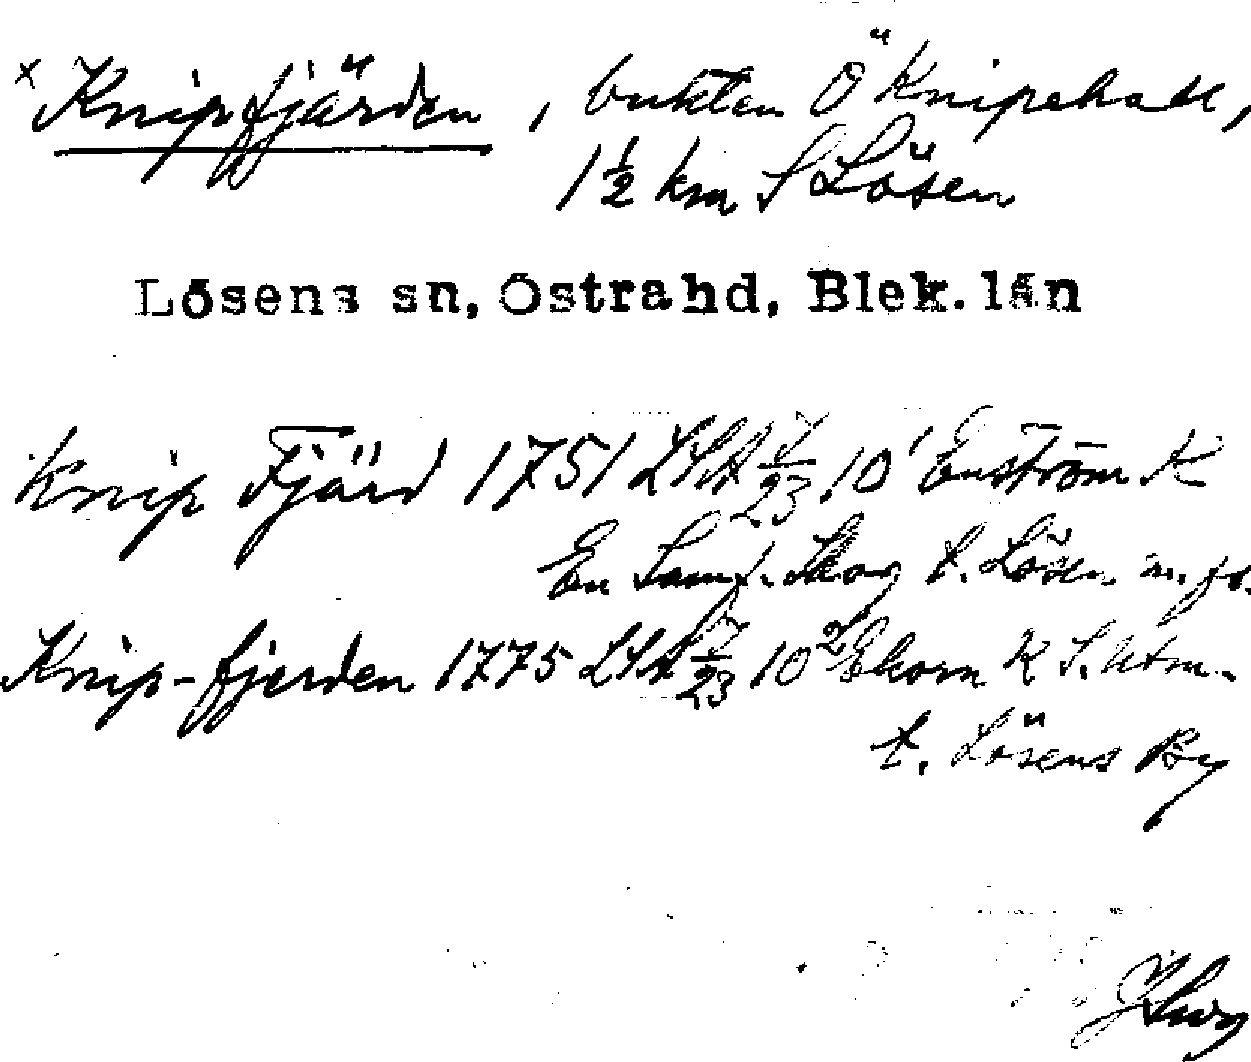 x Knipfjärden, bukten Ö Knipehall,
1 1/2 km S Lösen
Lösens sn, Östra hd, Blek. län
Knip Fjärd 1751 LSA 7/23 10¹ Enström K
En Samf. Skog t. Lösen m. fl.
Knip-fjerden 1775 LSA 7/23 10² Ekorn K S. Utm.
t. Lösens By